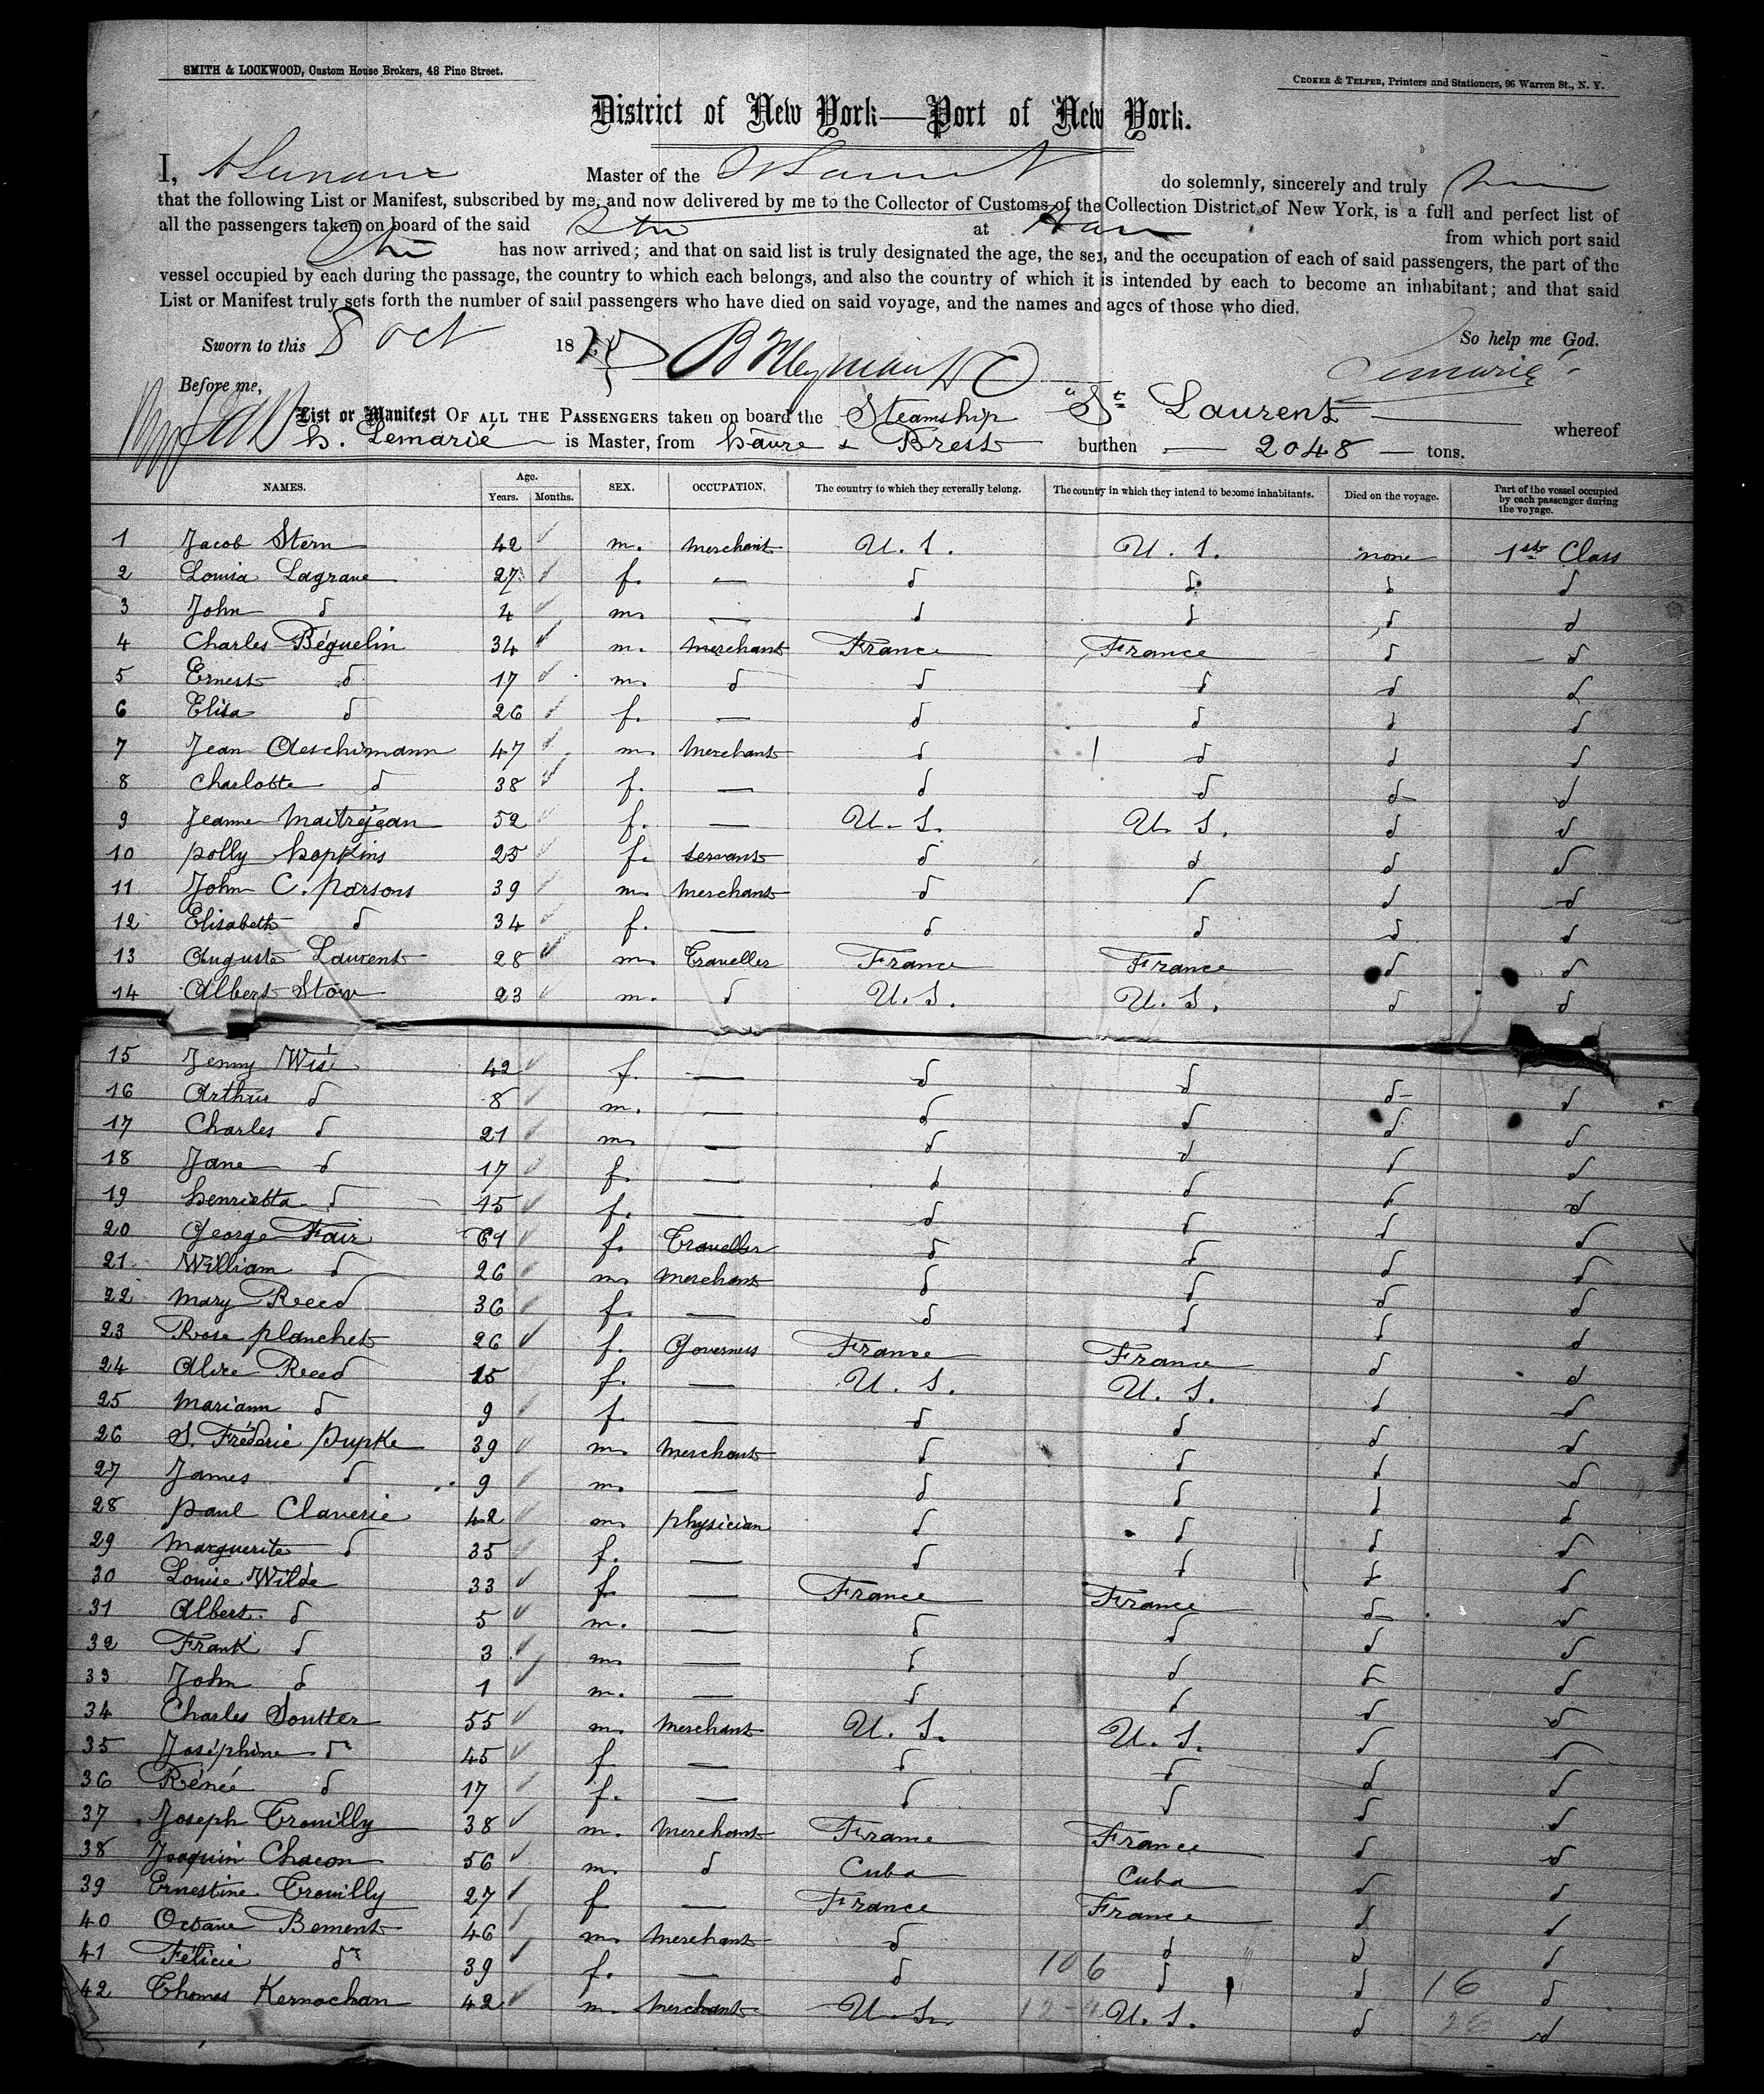 SMITH & LOCKWOOD, Custom House Brokers, 48 Pine Street.
CROKER & TELFER, Printers and Stationers, 96 Warren St., N. Y.
District of New York—Port of New York.
I, Master of the St Laurent do solemnly, sincerely and truly
that the following List or Manifest, subscribed by me, and now delivered by me to the Collector of Customs of the Collection District of New York, is a full and perfect list of
all the passengers taken on board of the said Str at Havre from which port said
Str has now arrived; and that on said list is truly designated the age, the sex, and the occupation of each of said passengers, the part of the
vessel occupied by each during the passage, the country to which each belongs, and also the country of which it is intended by each to become an inhabitant; and that said
List or Manifest truly sets forth the number of said passengers who have died on said voyage, and the names and ages of those who died.
Sworn to this 8 Oct 18 So help me God.
Before me, Lemarié
List or Manifest OF ALL THE PASSENGERS taken on board the Steamship "St Laurent whereof
h. Lemarié is Master, from havre & Brest burthen 2048 tons.
NAMES. Age. Years. Months. SEX. OCCUPATION. The country to which they severally belong. The country in which they intend to become inhabitants. Died on the voyage. Part of the vessel occupied by each passenger during the voyage.
1 Jacob Stern 42 m. merchant U. S. U. S. none 1st Class
2 Louisa Lagrave 27 f. — d d d d
3 John d 4 m. — d d d d
4 Charles Béguelin 34 m. merchant France France d d
5 Ernest d 17 m. d d d d d
6 Elisa d 26 f. — d d d d
7 Jean Aeschimann 47 m. merchant d d d d
8 Charlotte d 38 f. — d d d d
9 Jeanne Maitrejean 52 f. — U. S. U. S. d d
10 polly hopkins 25 f. servant d d d d
11 John C. parsons 39 m. merchant d d d d
12 Elisabeth d 34 f. — d d d d
13 Auguste Laurent 28 m. Traveller France France d d
14 Albert Stow 23 m. d U. S. U. S. d d
15 Jenny Wise 42 f. — d d d d
16 Arthur d 8 m. — d d d d
17 Charles d 21 m. — d d d d
18 Jane d 17 f. — d d d d
19 henrietta d 15 f. — d d d d
20 George Fair 61 f. Traveller d d d d
21 William d 26 m. merchant d d d d
22 Mary Reed 36 f. — d d d d
23 Rose planchet 26 f. Governess France France d d
24 Alice Reed 15 f. — U. S. U. S. d d
25 Mariann d 9 f. — d d d d
26 S. Fréderic pupke 39 m. merchant d d d d
27 James d 9 m. — d d d d
28 paul Claverie 42 m. physician d d d d
29 Marguerite d 35 f. — d d d d
30 Louise Wilde 33 f. — France France d d
31 Albert d 5 m. — d d d d
32 Frank d 3 m. — d d d d
33 John d 1 m. — d d d d
34 Charles Soutter 55 m. merchant U. S. U. S. d d
35 Joséphine d 45 f. — d d d d
36 Rénée d 17 f. — d d d d
37 Joseph Trouilly 38 m. merchant France France d d
38 Joaquin Chacon 56 m. d Cuba Cuba d d
39 Ernestine Trouilly 27 f — France France d d
40 Octave Bement 46 m. merchant d d d d
41 Félicie d 39 f. — d 106 d d 16 d
42 Thomas Kernochan 42 m. merchant U. S. U. S. d 26 d